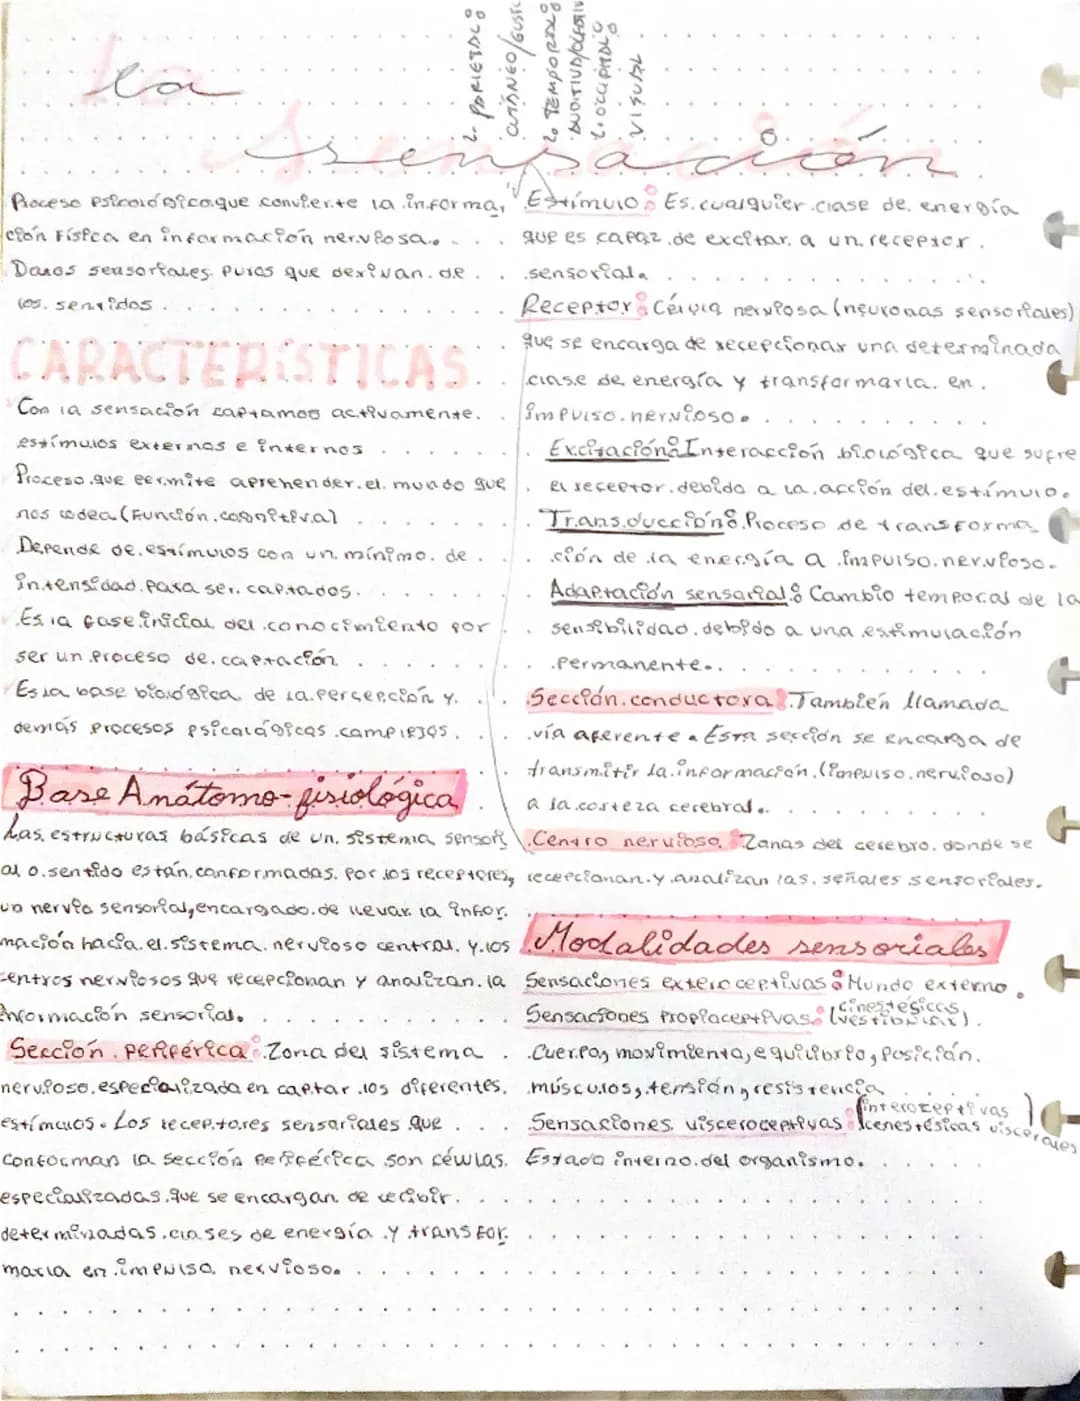 L. PARIETAL:
CUTÁNEO/GUST
L. TEMPORAL:
AUDITIVA/OLFATIV
L. OCCIPITAL:
VISUAL
La
sensación
Proceso psicológico que convierte la informa,
ción física en información nerviosa.
Datos sensoriales puros que derivan de
los sentidos.
CARACTERÍSTICAS
Con la sensación captamos activamente
estímulos externos e internos
Proceso que permite aprehender el mundo que
nos rodea (Función cognitiva)
Depende de estímulos con un mínimo de
intensidad para ser captados.
Es la fase inicial del conocimiento por
ser un proceso de captación
Es la base biológica de la percepción y
demás procesos psicológicos complejos.
Base Anátomo-fisiológica
Las estructuras básicas de un sistema sensori
al o sentido están conformadas por los receptores,
un nervio sensorial, encargado de llevar la infor.
mación hacia el sistema nervioso central y los
centros nerviosos que recepcionan y analizan la
información sensorial.
Sección periférica: Zona del sistema
nervioso especializada en captar los diferentes
estímulos. Los receptores sensoriales que
conforman la sección periférica son células
especializadas que se encargan de recibir
determinadas clases de energía y transfor.
marla en impulso nervioso.
Estímulo: Es cualquier clase de energía
que es capaz de excitar a un receptor
sensorial.
Receptor: Célula nerviosa (neuronas sensoriales)
que se encarga de recepcionar una determinada
clase de energía y transformarla en
impulso nervioso.
Excitación: Interacción biológica que sufre
el receptor debido a la acción del estímulo.
Transducción: Proceso de transforma_
ción de la energía a impulso nervioso.
Adaptación sensorial: Cambio temporal de la
sensibilidad debido a una estimulación
permanente.
Sección conductora: También llamada
vía aferente. Esta sección se encarga de
transmitir la información (impulso nervioso)
a la corteza cerebral.
Centro nervioso: Zonas del cerebro donde se
recepcionan y analizan las señales sensoriales.
Modalidades sensoriales
Sensaciones exteroceptivas: Mundo externo.
Sensaciones Propioceptivas: (cinestésicas
vestibular).
Cuerpo, movimiento, equilibrio, posición.
músculos, tensión, resistencia
Sensaciones visceroceptivas: (interoceptivas
cenestésicas viscerales)
Estado interno del organismo.